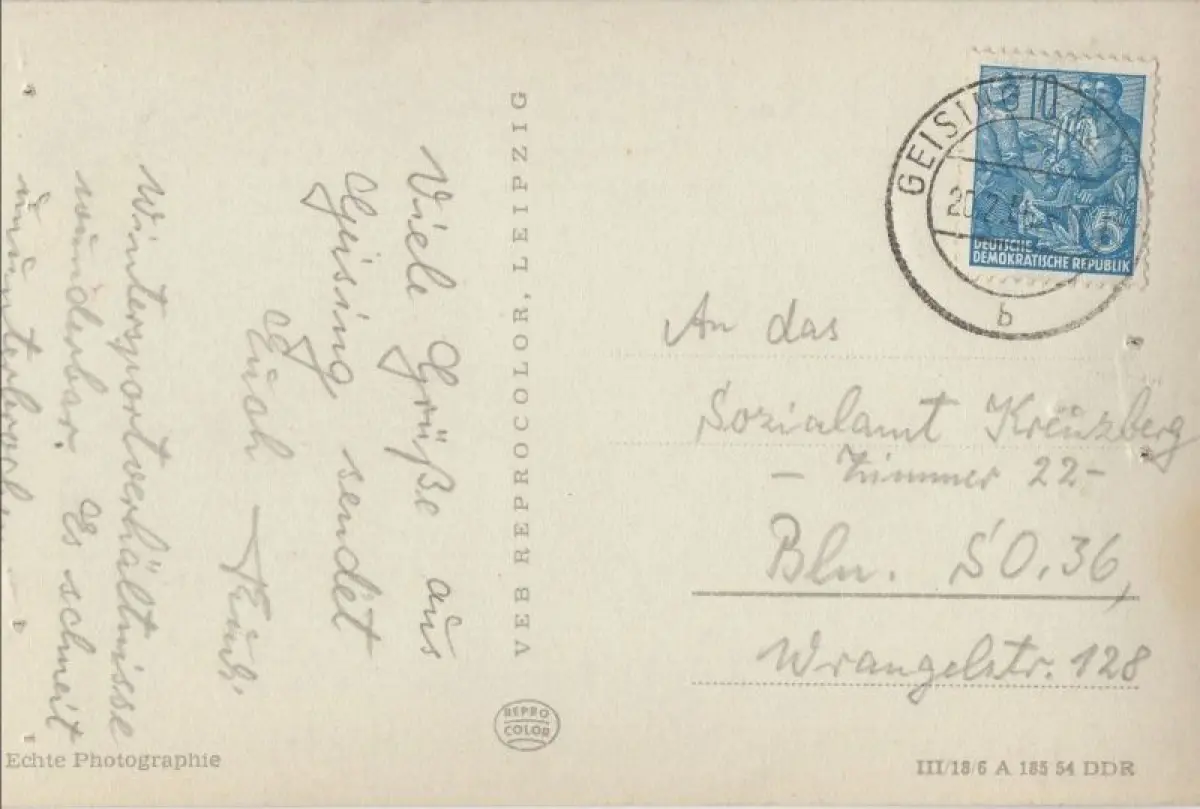 Viele Grüße aus
Geising sendet
Euch
Wintersportverhältnisse
wunderbar. Es schneit
ununterbrochen
VEB REPROCOLOR, LEIPZIG
REPRO
COLOR
Echte Photographie
GEISING
20.2.
b
10
5
DEUTSCHE
DEMOKRATISCHE REPUBLIK
An das
Sozialamt Kreuzberg
- Zimmer 22-
Bln. SO. 36,
Wrangelstr. 128
III/18/6 A 185 54 DDR